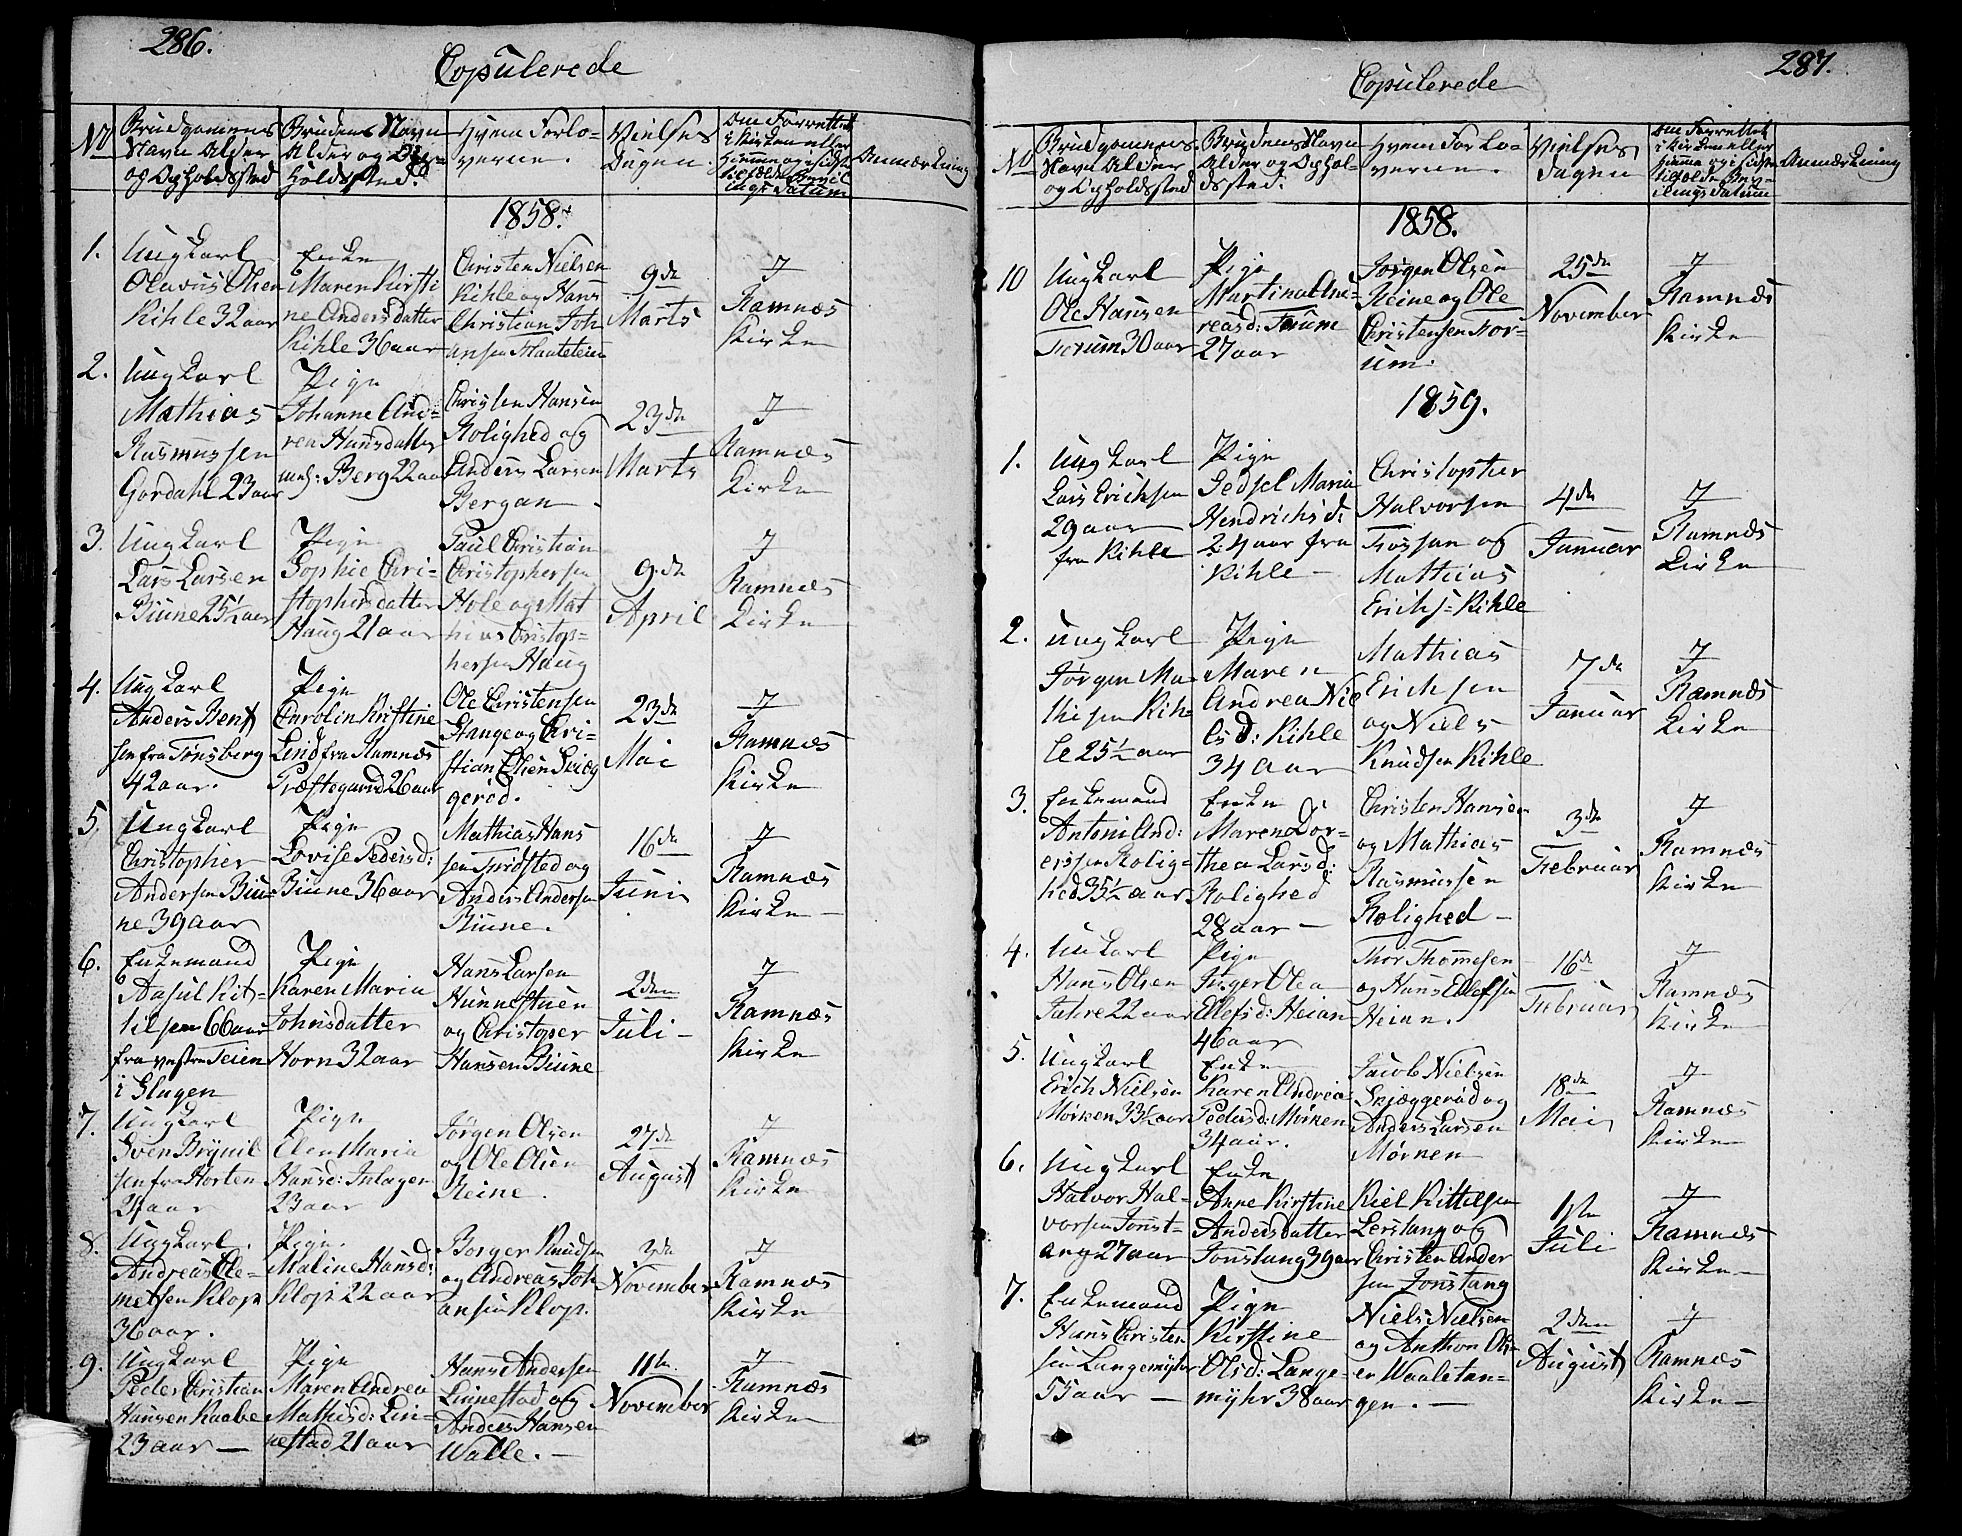 286.
Copulerede
No
Brudgomens
Navn Alder
og Opholdssted
Brudens Navn
Alder og Op-
holdssted.
Hvem Forlo-
verne.
Vielses
Dagen.
Om Forrettet
i Kirken eller
Hjemme og i sidste
tilfælde Bevil
lings Datum
Anmærkning
1858.
1.
Ungkarl
Olavus Olsen
Kihle 32 aar
Enke
Maren Kirsti
ne Andersdatter
Kihle 36 aar
Christen Nielsen
Kihle og Hans
Christian Joh
ansen
9de
Marts
I
Ramnæs
Kirke
2.
Ungkarl
Mathias
Rasmussen
Gordahl 23 aar
Pige
Johanne And-
rea Hansdatter
Berg 22 aar
Christen Hansen
Rolighed og
Anders Larsen
Bergan
23de
Marts
I
Ramnæs
Kirke
3.
Ungkarl
Lars Larsen
Biune 25½ aar
Pige
Sophie Chri-
stophersdatter
Haug 21 aar
Paul Christian
Christophersen
Hole og Mat
hias Christop-
hersen Haug
9de
April
I
Ramnæs
Kirke
4.
Ungkarl
Anders Bent
sen fra Tønsberg
42 aar.
Pige
Carolin Kirstine
Lind fra Ramnæs
Præstegaard 26 aar
Ole Christensen
Stange og Chri-
stian Olsen Skiæg
gerød.
23de
Mai
I
Ramnæs
Kirke
5.
Ungkarl
Christopher
Andersen Biu-
ne 39 aar
Pige
Lovise Pedersd:
Biune 36 aar
Mathias Hans
sen Trøfsted og
Anders Andersen
Biune.
16de
Juni
I
Ramnæs
Kirke
6.
Enkemand
Aasul Kit-
tilsen 66 aar
fra vestre Teien
i Slagen
Pige
Karen Maria
Johnsdatter
Horn 32 aar
Hans Larsen
Hunnestuen
og Christoper
Hansen Biune
2den
Juli
I
Ramnæs
Kirke
7.
Ungkarl
Sven Brynil
sen fra Horten
24 aar
Pige
Elen Maria
Hansd: Inlagen
23 aar
Jørgen Olsen
og Ole Olsen
Reine.
27de
August
I
Ramnæs
Kirke
8.
Ungkarl.
Andreas Cle-
metsen Klop
36 aar.
Pige.
Maline Hansd:
Klop 22 aar
Borger Knudsen
og Andreas Joh
ansen Klop.
3de
November
I
Ramnæs
Kirke
9.
Ungkarl
Peder Christian
Hansen Raabe
23 aar
Pige
Maren Andrea
Mathisd: Lin-
nestad 21 aar
Hans Andersen
Linnestad og
Anders Hansen
Walle.
11te
November
I
Ramnæs
Kirke
287.
Copulerede
No
Brudgomens
Navn Alder
og Opholdssted
Brudens Navn
Alder og Ophol-
dssted.
Hvem Forlo-
verne.
Vielses
Dagen
Om Forrettet
i Kirken eller
Hjemme og i sidste
tilfælde Bev-
ilings Datum
Anmærkning
1858.
10
Ungkarl
Ole Hansen
Forum 30 aar
Pige
Martina And-
reasd: Forum
27 aar
Jørgen Olsen
Reine og Ole
Christensen For-
um.
25de
November
I
Ramnæs
Kirke
1859.
1.
Ungkarl
Lars Erichsen
29 aar
fra Kihle
Pige
Sedsel Maria
Hendrichsd:
24 aar fra
Kihle
Christopher
Halvorsen
Fossan og
Mathias
Erichs: Kihle
4de
Januar
I
Ramnæs
Kirke
2.
Ungkarl
Jørgen Ma-
thisen Kih-
le 25½ aar
Pige
Maren
Andrea Nie
lsd: Kihle
34 aar
Mathias
Erichsen
og Niels
Knudsen Kihle
7de
Januar
I
Ramnæs
Kirke
3.
Enkemand
Antoni And:
ersen Rolig-
hed 35½ aar
Enke
Maren Dor-
thea Larsd:
Rolighed
28 aar
Christen Hansen
og Mathias
Rasmussen
Rolighed
3de
Februar
I
Ramnæs
Kirke
4.
Unkarl
Hans Olsen
Fatre 22 aar
Pige
Inger Olea
Ellefsd: Heian
46 aar
Thor Thomesen
og Hans Ellefsen
Heian.
16de
Februar
I
Ramnæs
Kirke
5.
Ungkarl
Erich Nielsen
Mørken 33½ aar
Enke
Karen Andrea
Pedersd: Mørken
34 aar.
Jacob Nielsen
Skjæggerød og
Anders Larsen
Mørken
18de
Mai
I
Ramnæs
Kirke
6.
Ungkarl
Halvor Hal-
vorsen Jonst-
ang 27 aar
Enke
Anne Kirstine
Andersdatter
Jonstang 39 aar
Kiel Kittilsen
Lerstang og
Christen Ander
sen Jonstang
1ste
Juli
I
Ramnæs
Kirke
7.
Enkemand
Hans Christen
sen Langemyhr
55 aar
Pige
Kirstine
Olsd: Lange-
myhr 38 aar
Niels Nielsen
og Anthon Ols-
en Waaletan-
gen.
2den
August
I
Ramnæs
Kirke